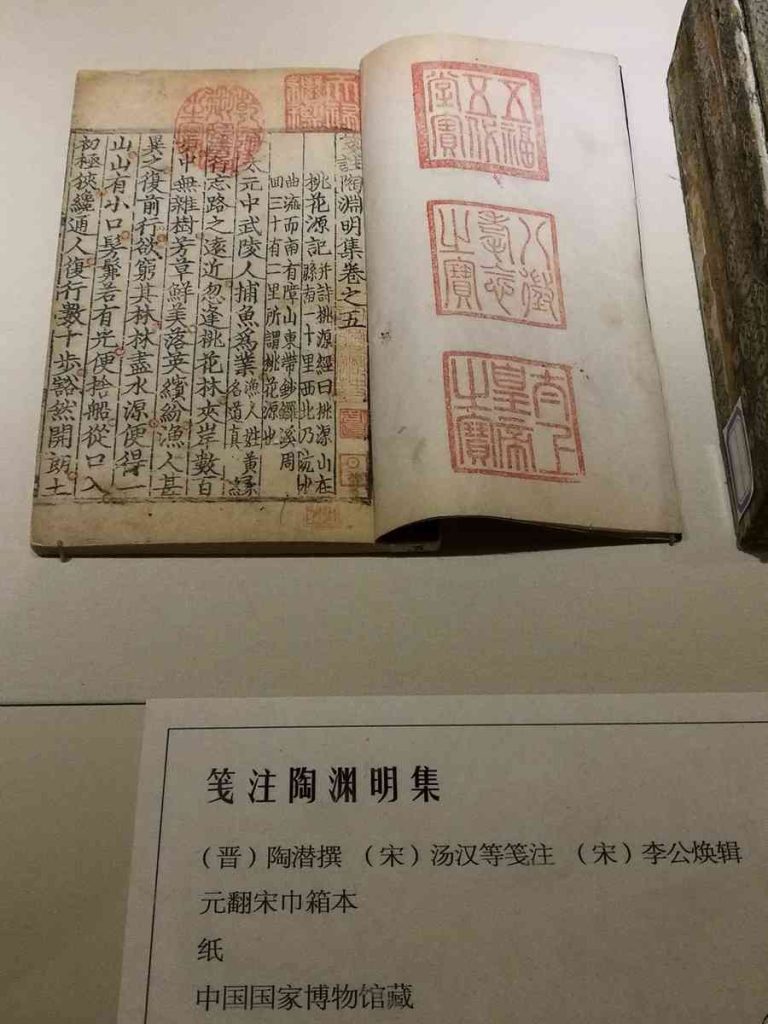 五福五代堂寶
八徵耄念之寶
太上皇帝之寶
天祿繼鑑
乾隆御覽之寶
註陶淵明集卷之五
桃花源記 并詩 桃源經曰桃源山在
縣南一十里西北乃沅水
曲流而南有障山東帶鈔鑼溪周
回三十有二里所謂桃花源也
太元中武陵人捕魚爲業 漁人姓黃名道真 緣
行忘路之遠近忽逢桃花林夾岸數百
步中無雜樹芳草鮮美落英繽紛漁人甚
異之復前行欲窮其林林盡水源便得一
山山有小口髣髴若有光便捨船從口入
初極狹纔通人復行數十步豁然開朗土
笺注陶渊明集
（晋）陶潜撰 （宋）汤汉等笺注 （宋）李公焕辑
元翻宋巾箱本
纸
中国国家博物馆藏